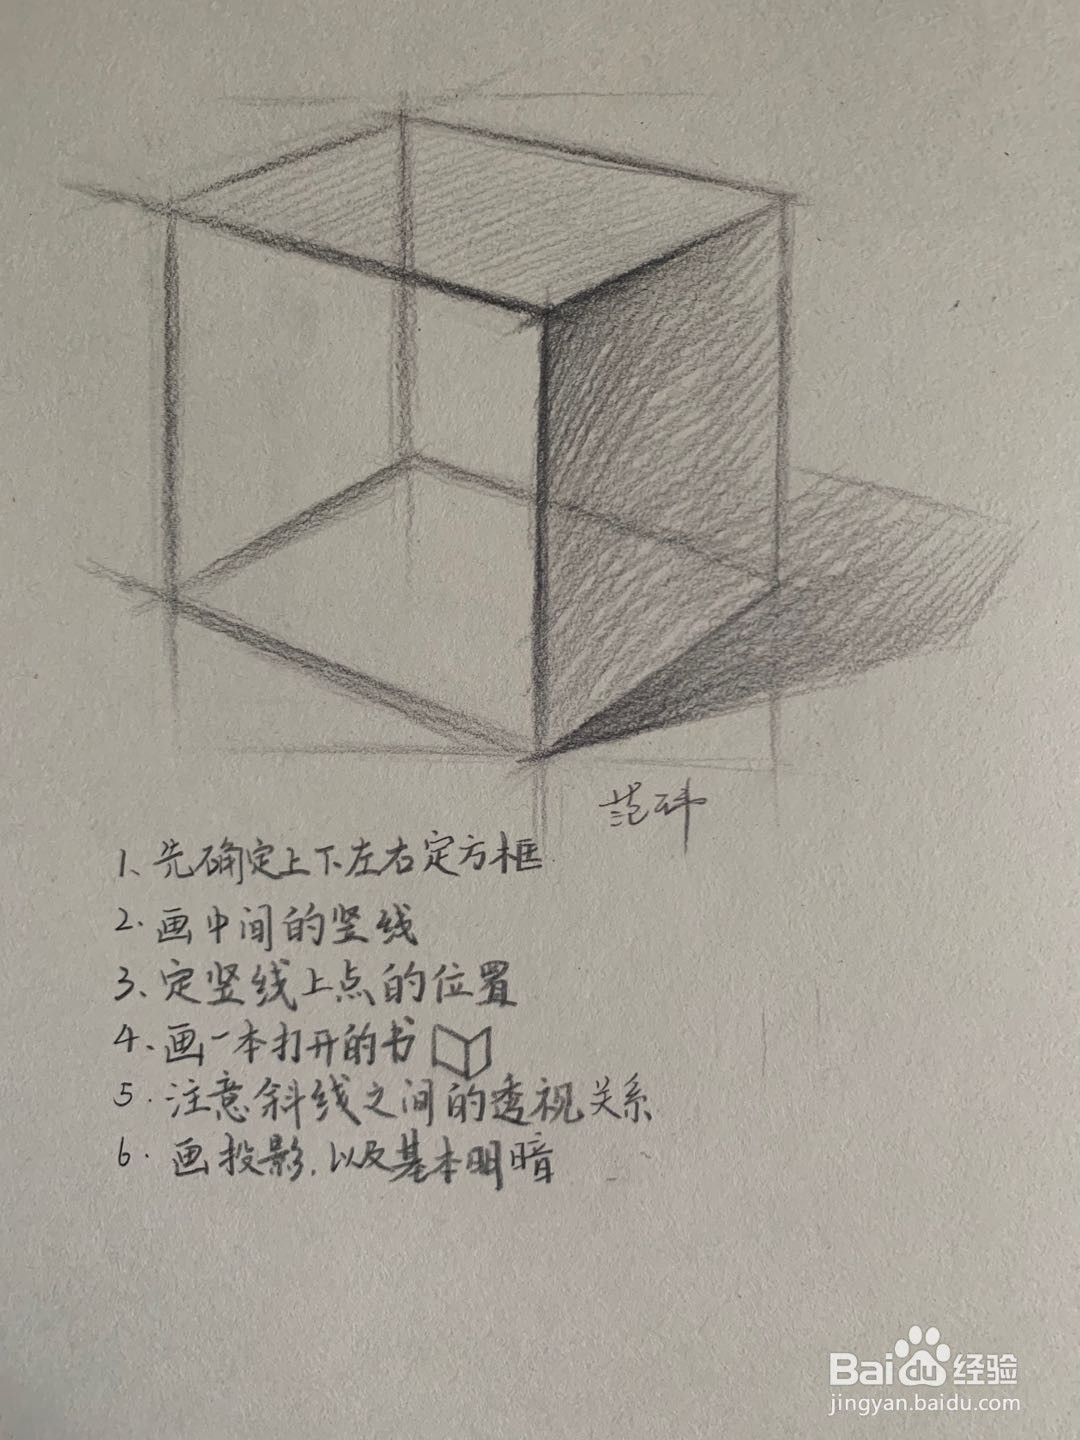 范玮
1、先确定上下左右定方框
2.画中间的竖线
3、定竖线上点的位置
4、画一本打开的书
5.注意斜线之间的透视关系
6.画投影,以及基本明暗
Baidu经验
jingyan.baidu.com